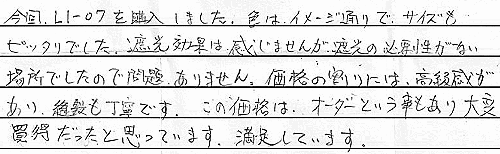 今回、L1-07を購入しました。色は、イメージ通りで、サイズも
ピッタリでした。遮光効果は感じませんが、遮光の必要性がない
場所でしたので問題ありません。価格の割りには、高級感が
あり、縫製も丁寧です。この価格は、オーダーという事もあり大変
買得だったと思っています。満足しています。